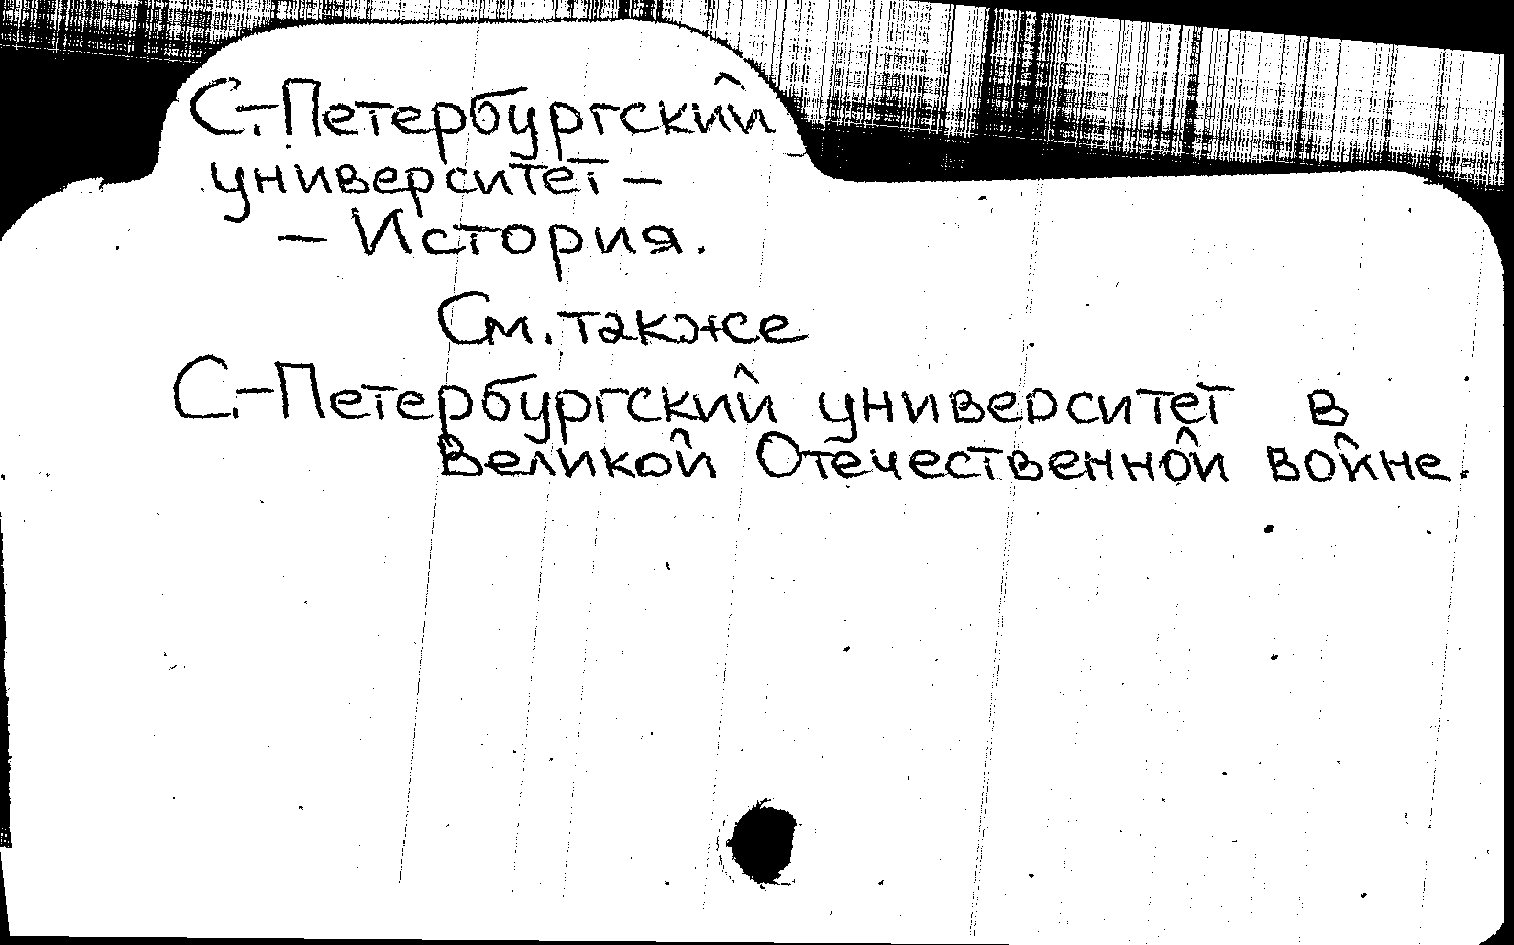 С.-Петербургский
университет –
– История.
См. также
С.-Петербургский университет в
Великой Отечественной войне.